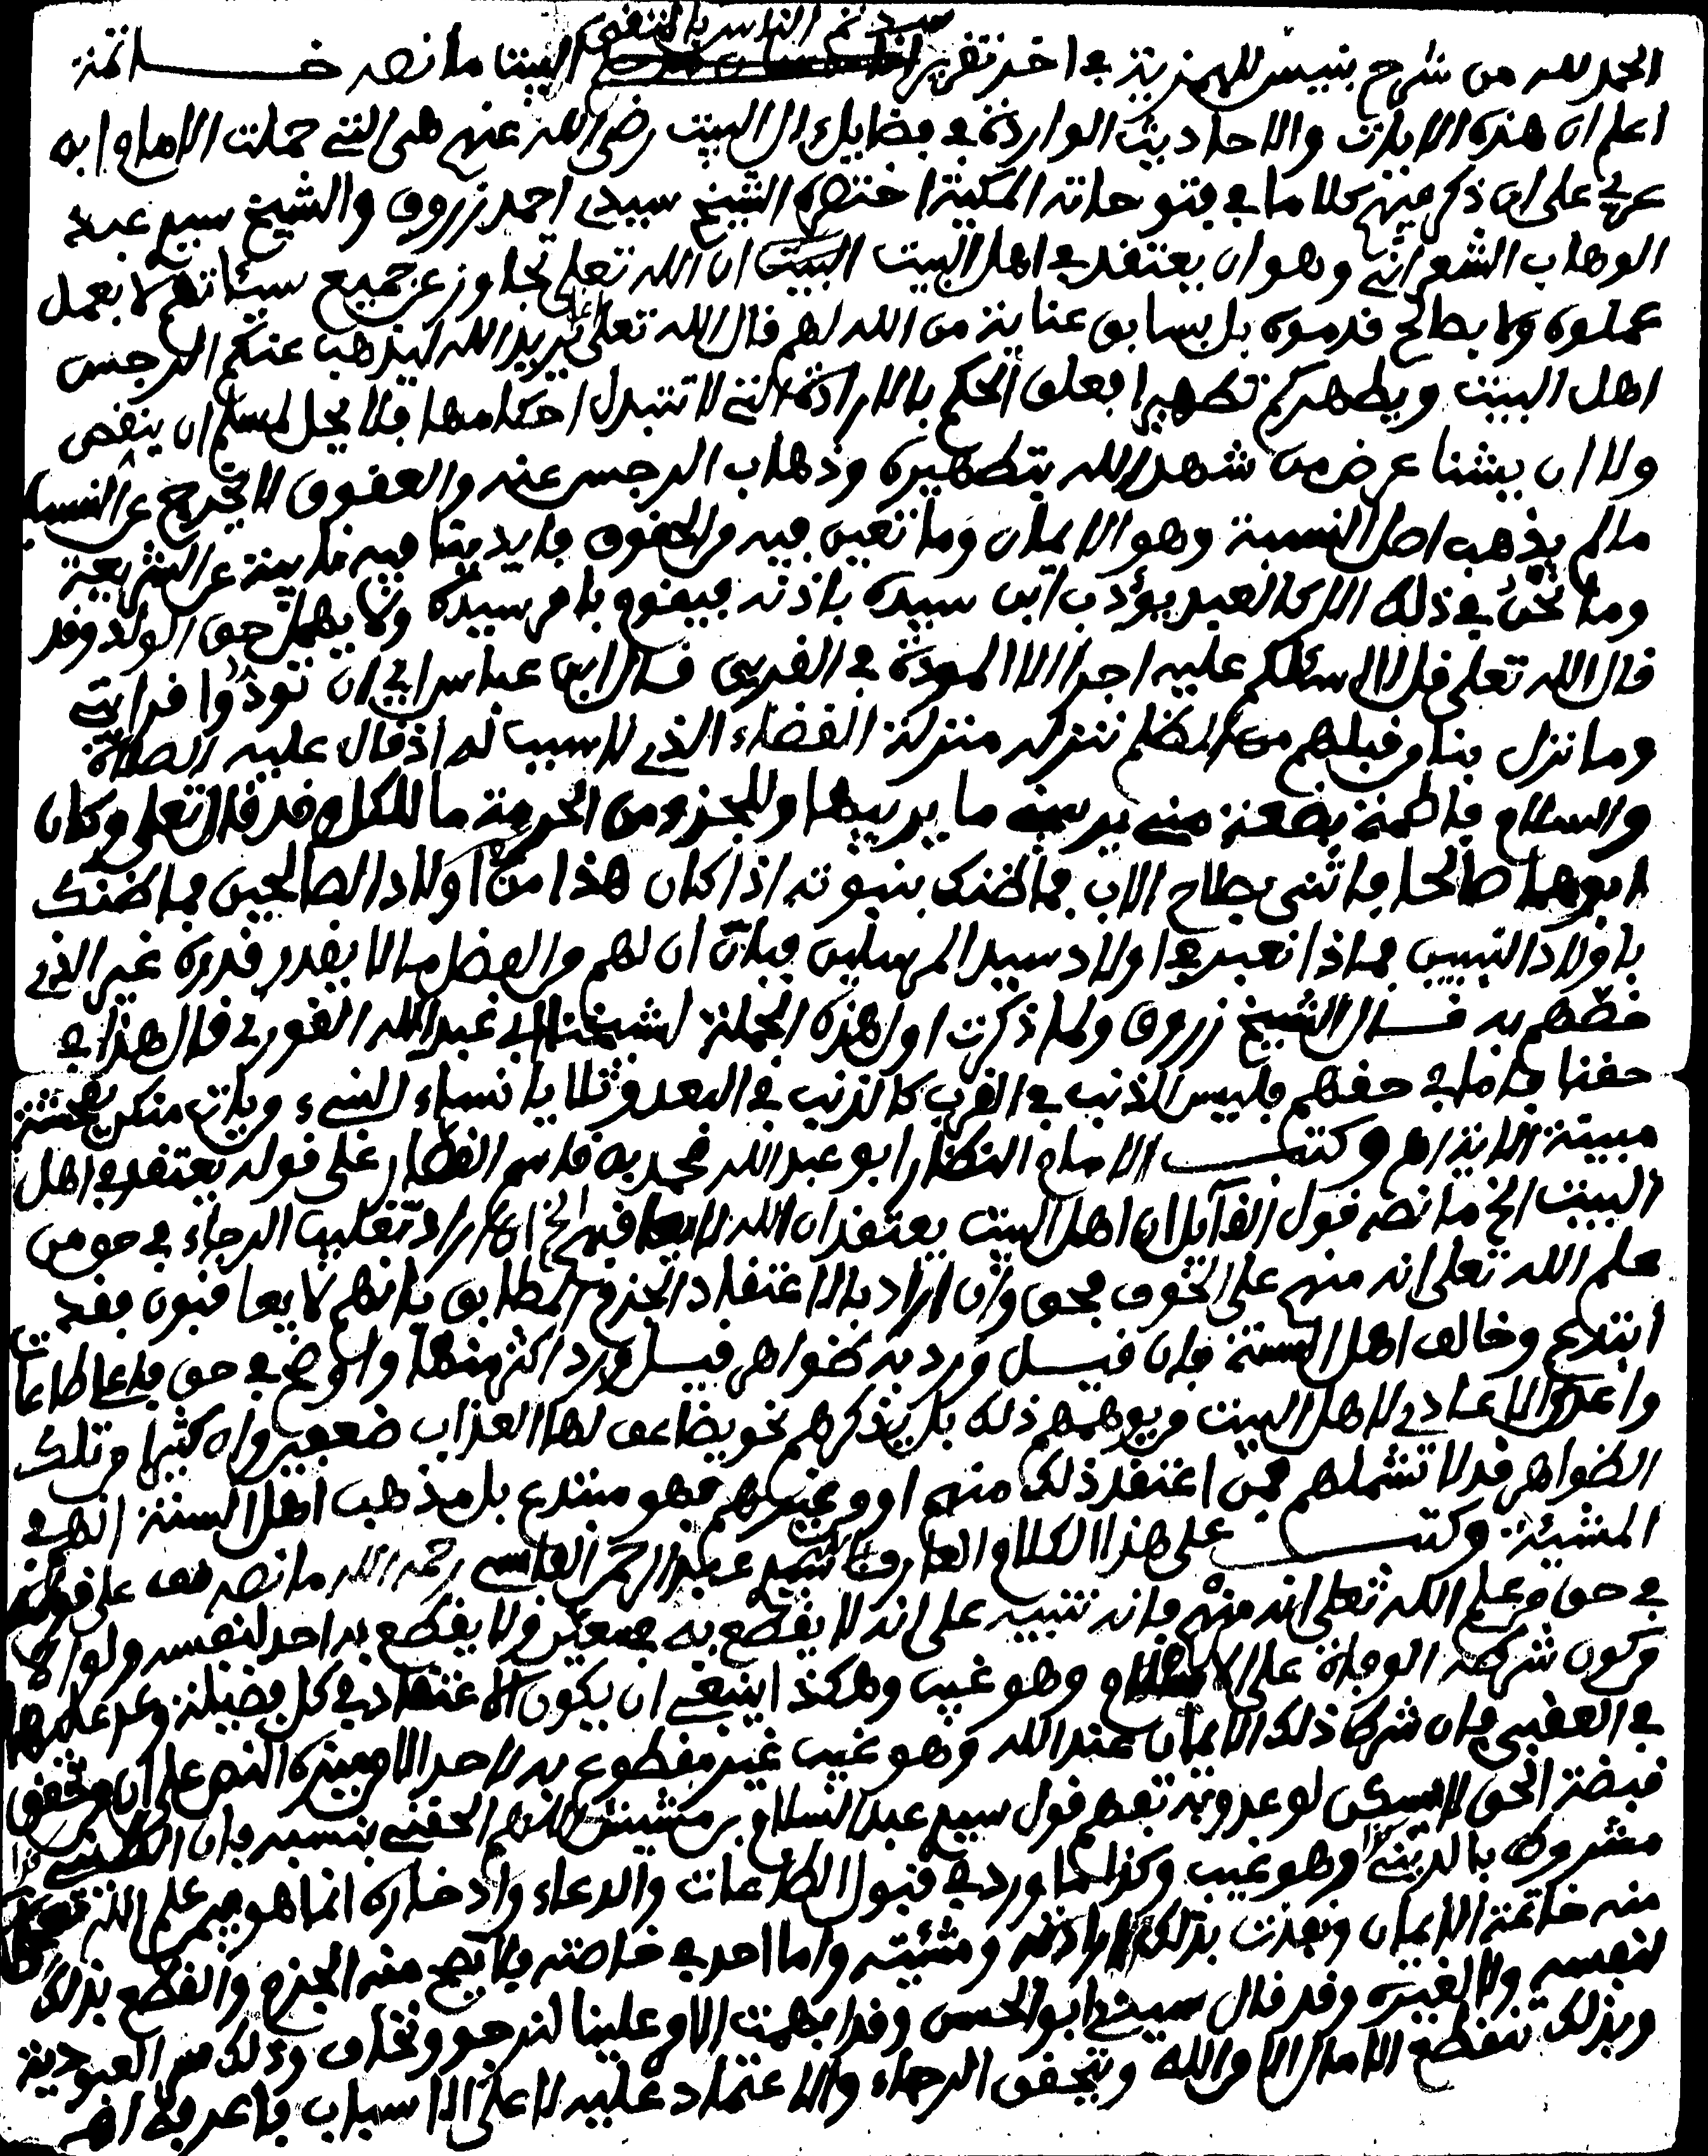 سيدتم الناس بالتقوى
الحمد لله من شرح بنيس للهمزية في اخر تقرير البيتا ما نصه خاتمة
اعلم ان هذه الايات والاحاديث الواردة في فضايل ال البيت رضي الله عنهم هي التي حملت الامام ابن
عربي على ان ذكر فيهم كلاما في فتوحاته المكية اختصره الشيخ سيدي احمد زروق والشيخ سيدي عبد
الوهاب الشعراني وهو ان يعتقد في اهل البيت ان الله تعلى تجاوز عن جميع سيئاتهم لا بعمل
عملوه ولا بصالح قدموه بل بسابق عناية من الله لهم قال الله تعلى انما يريد الله ليذهب عنكم الرجس
اهل البيت ويطهركم تطهيرا فعلق الحكم بالارادة التي لا تتبدل احكامها فلا يحل لمسلم ان ينقص
ولا ان يشنا عرض من شهد الله بتطهيره وذهاب الرجس عنه والعقوق لا يخرج عن النسب
مالم يذهب اصل النسبة وهو الايمان وما تعين فيه من الحقوق فايدينا فيه نايبة عن الشريعة
وما نحن في ذلك الا كالعبد يؤدب ابن سيده باذنه فيقوم بامر سيده ولا يهمل حق الولد وقد
قال الله تعلى قل لا اسئلكم عليه اجرا الا المودة في القربى قال ابن عباس اي ان تودوا قرابتي
وما نزل بنا من قبلهم من الظلم ننزله منزلة القضاء الذي لا سبب له اذ قال عليه الصلاة
والسلام فاطمة بضعة مني يريبني ما يريبها وللجزء من الحرمة ما للكل وقد قال تعلى وكان
ابوهما صالحا فاثنى بصلاح الاب فما ظنك بنبوته اذا كان هذا من اولاد الصالحين فما ظنك
باولاد النبيين فماذا نعبر في اولاد سيد المرسلين فبان ان لهم من الفضل ما لا يقدر قدره غير الذي
خصهم به قال الشيخ زروق ولما ذكرت اول هذه الجملة لشيخنا ابي عبد الله القوري قال هذا في
حقنا واما في حقهم فليس الذنب في القرب كالذنب في البعد وتلا يا نساء النبيء من يات منكن بفحشة
مبينة الاية اهـ وكتب الامام النظار ابو عبد الله محمد بن قاسم القصار على قوله يعتقد في اهل
البيت الخ ما نصه قول القآيل ان اهل البيت يعتقد ان الله لا يعاقبهم الخ ان اراد تغليب الرجاء في حق من
علم الله تعلى انه منهم على الخوف فحق وان اراد بالاعتقاد الجزم المطابق بانهم لا يعاقبون فقد
ابتدع وخالف اهل السنة فان قيل ورد به ظواهر قيل ورد اكثر منها واوضح في حق فاعل طاعات
واعد الاعادي لاهل البيت من يوهمهم ذلك بل يذكرهم نحو يضاعف لها العذاب ضعفين وان كثيرا من تلك
الظواهر قد لا تشملهم فمن اعتقد ذلك منهم او من غيرهم فهو مبتدع بل مذهب اهل السنة انهم في
المشيئة وكتب على هذا الكلام العارف سيدي عبد الرحمن الفاسي رحمه الله ما نصه قف على قوله
في حق من علم الله تعلى انه منهم فانه تنبيه على انه لا يقطع به في معين ولا يقطع به احد لنفسه ولو
من كون شرطه الوفاة على الاسلام وهو غيب وهكذا ينبغي ان يكون الاعتقاد في كل فضيلة وعد عليها
في العقبى فان شرط ذلك الايمان عند الله وهو غيب غير مقطوع به لاحد الا من ميزه النص على ان من تحقق
قبضة الحق لا يسكن لوعد وبه تفهم قول سيدي عبد السلام بن مشيش اللهم الحقني بنسبه فان الطيني
مشروط بالديني وهو غيب وكذا ما ورد في قبول الطاعات والدعاء وادخاره انما هو فيمن علم الله
منه خاتمة الايمان ونفذت بذلك ارادته ومشئته واما احد في خاصته فلا يصح منه الجزم والقطع بذلك
لنفسه ولا لغيره وقد قال سيدي ابو الحسن وقد ابهمت الامر علينا لنرجو ونخاف وذلك سر العبودية
وبذلك تنقطع الامال الا من الله ويتحقق الرجاء والاعتماد عليه لا على الاسباب فاعرفه اهـ